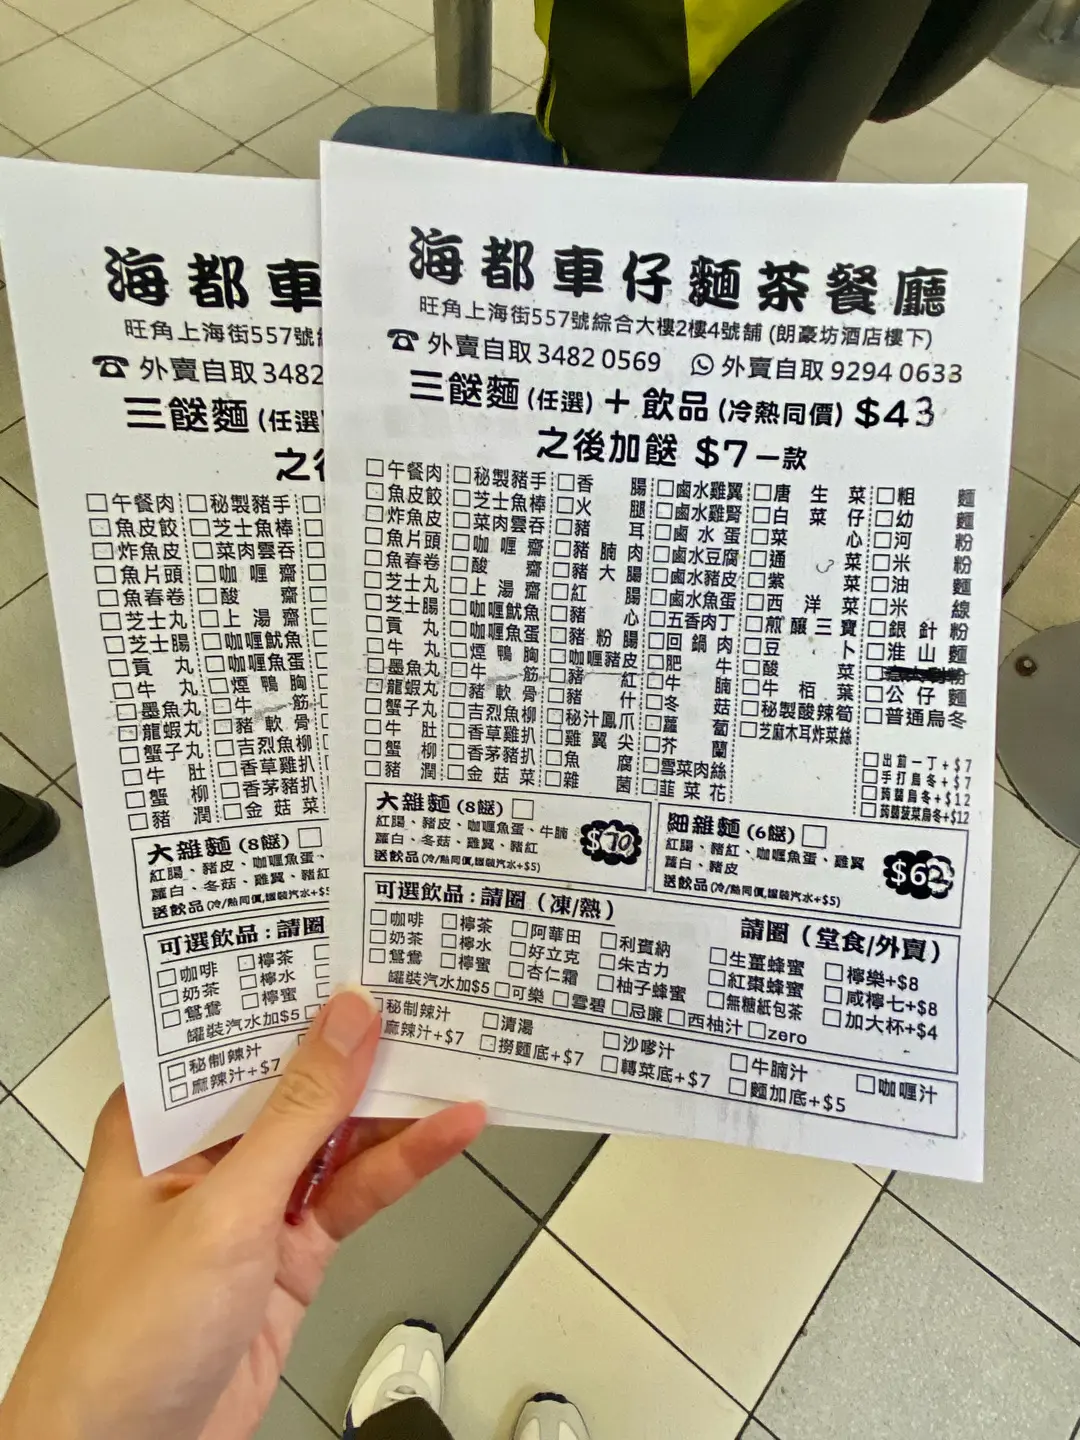 海都車仔麵茶餐廳
旺角上海街557號綜合大樓2樓4號舖 (朗豪坊酒店樓下)
☎外賣自取 3482 0569 外賣自取 9294 0633
三餸麵 (任選) + 飲品 (冷熱同價) $43
之後加餸 $7一款
□午餐肉 □秘製豬手 □香腸 □鹵水雞翼 □唐生菜 □粗麵
□魚皮餃 □芝士魚棒 □火腿 □鹵水雞腎 □白菜仔 □幼麵
□炸魚皮 □菜肉雲吞 □豬耳 □鹵水蛋 □菜心 □河粉
□魚片頭 □咖喱齋 □豬腩肉 □鹵水豆腐 □通菜 □米粉
□魚春卷 □酸齋 □豬大腸 □鹵水豬皮 □紫菜 □油麵
□芝士丸 □上湯齋 □紅腸 □鹵水魚蛋 □西洋菜 □米線
□芝士腸 □咖喱魷魚 □豬心 □五香肉丁 □煎釀三寶 □銀針粉
□貢丸 □咖喱魚蛋 □豬粉腸 □回鍋肉 □豆卜 □淮山麵
□牛丸 □煙鴨胸 □咖喱豬皮 □肥牛 □酸菜
□墨魚丸 □牛筋 □豬紅 □牛腩 □牛栢葉 □公仔麵
□龍蝦丸 □豬軟骨 □豬什 □冬菇 □秘製酸辣筍 □普通烏冬
□蟹子丸 □吉烈魚柳 □秘汁鳳爪 □蘿蔔 □芝麻木耳炸菜絲
□牛肚 □香草雞扒 □雞翼尖 □芥蘭 □出前一丁+$7
□蟹柳 □香茅豬扒 □魚腐 □雪菜肉絲 □手打烏冬+$7
□豬潤 □金菇菜 □雜菌 □韮菜花 □蒟蒻烏冬+$12
□蒟蒻菠菜烏冬+$12
大雜麵 (8餸) □
紅腸、豬皮、咖喱魚蛋、牛腩
蘿白、冬菇、雞翼、豬紅
送飲品 (冷/熱同價,罐裝汽水+$5)
$70
細雜麵 (6餸) □
紅腸、豬紅、咖喱魚蛋、雞翼
蘿白、豬皮
送飲品 (冷/熱同價,罐裝汽水+$5)
$62
可選飲品:請圈 (凍/熱) 請圈 (堂食/外賣)
□咖啡 □檸茶 □阿華田 □利賓納 □生薑蜂蜜 □檸樂+$8
□奶茶 □檸水 □好立克 □朱古力 □紅棗蜂蜜 □咸檸七+$8
□鴛鴦 □檸蜜 □杏仁霜 □柚子蜂蜜 □無糖紙包茶 □加大杯+$4
罐裝汽水加$5 □可樂 □雪碧 □忌廉 □西柚汁 □zero
□秘制辣汁 □清湯 □沙嗲汁 □牛腩汁 □咖喱汁
麻辣汁+$7 □撈麵底+$7 □轉菜底+$7 □麵加底+$5
海都車
旺角上海街557號
☎外賣自取 3482
三餸麵 (任選
之
□午餐肉 □秘製豬手
□魚皮餃 □芝士魚棒
□炸魚皮 □菜肉雲吞
□魚片頭 □咖喱齋
□魚春卷 □酸齋
□芝士丸 □上湯齋
□芝士腸 □咖喱魷魚
□貢丸 □咖喱魚蛋
□牛丸 □煙鴨胸
□墨魚丸 □牛筋
□龍蝦丸 □豬軟骨
□蟹子丸 □吉烈魚柳
□牛肚 □香草雞扒
□蟹柳 □香茅豬扒
□豬潤 □金菇菜
大雜麵 (8餸) □
紅腸、豬皮、咖喱魚蛋、
蘿白、冬菇、雞翼、豬紅
送飲品 (冷/熱同價,罐裝汽水+$5
可選飲品:請圈
□咖啡 □檸茶
□奶茶 □檸水
□鴛鴦 □檸蜜
罐裝汽水加$5
□秘制辣汁
□麻辣汁+$7